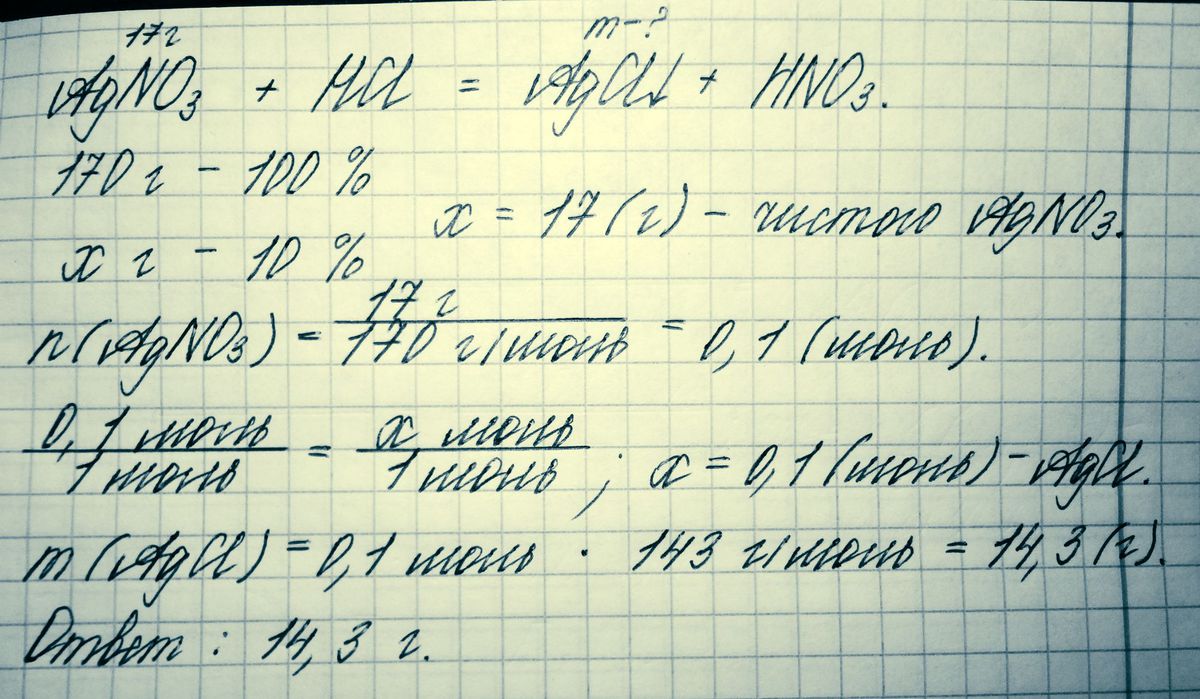 17г m-?
AgNO₃ + HCl = AgCl↓ + HNO₃.
170 г - 100 %
x = 17 (г) - чистого AgNO₃.
x г - 10 %
n(AgNO₃) = 17 г / 170 г/моль = 0,1 (моль).
0,1 моль / 1 моль = x моль / 1 моль ; x = 0,1 (моль) - AgCl.
m(AgCl) = 0,1 моль · 143 г/моль = 14,3 (г).
Ответ : 14,3 г.